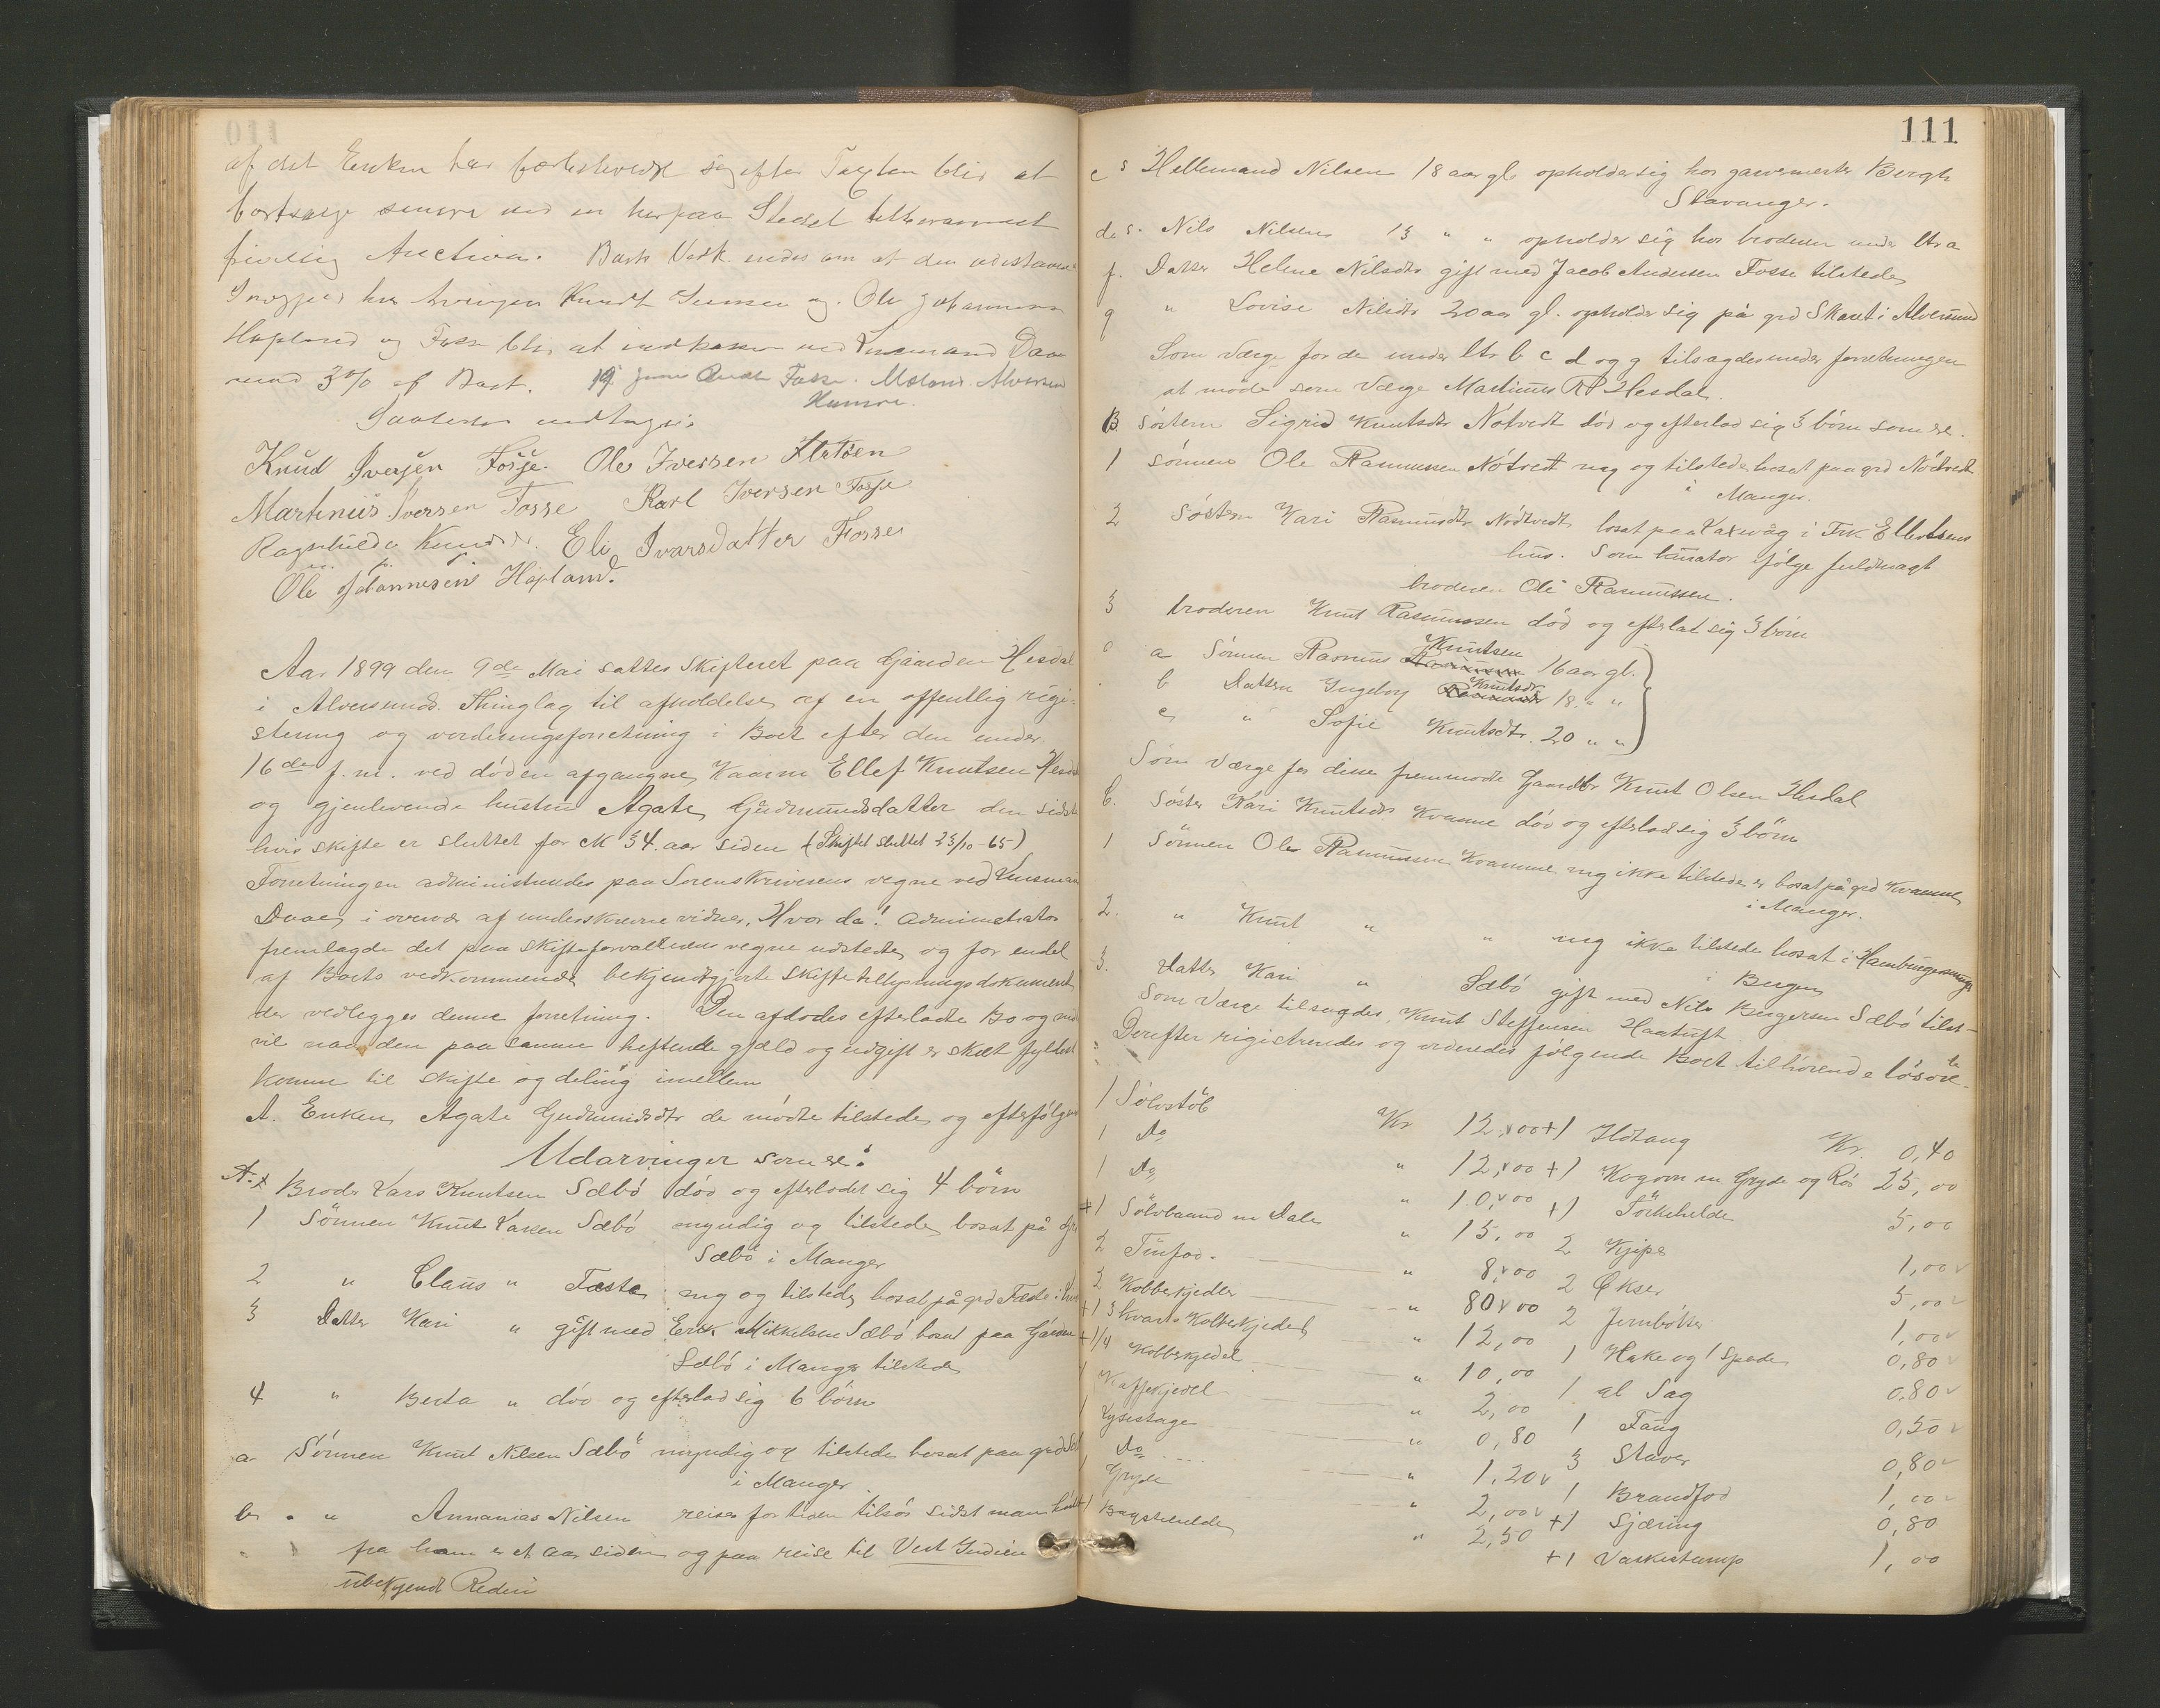 af det Enken har forbeholdt sig efter Taxten blir at
bortsælge senere ved en her paa Stedet
frivillig Auction. Boets Vedk. enedes om at den udestaaende
hos Knudt Iversen og Ole Johannesen
Hopland og Fosse blir at indkasseres ved Lensmand Daae
mod 3% af Boet. 19 Juni Fosse. Alversund
Hamre.
Saaledes vedtages:
Knud Iversen Fosse. Ole Iversen Flatöen
Martinus Iversen Fosse Karl Iversen Fosse
Ragnhilde Knudsd. Eli Ivarsdatter Fosse
m. p.
Ole Johannesen Hopland.
Aar 1899 den 9de Mai sattes Skifteret paa Gaarden Hesdal
i Alversunds Thinglag til afholdelse af en offentlig regi-
stering og vorderingsforretning i Boet efter den under
16de f. m. ved döden afgangne Kaarm Ellef Knutsen Hesdal
og gjenlevende hustru Agate Gudmundsdatter den sidste
hvis skifte er sluttet for 34 aar siden (Skiftet sluttet 23/10-65)
Forretningen administreredes paa Sorenskriverens vegne ved Lensmand
Daae i overvær af underskrevne vidner. Hvor da! Administrator
fremlagde det paa Skifteforvalterens vegne udstedte og for endel
af Boets vedkommende bekjendtgjorte Skiftetillysningsdokument
der vedlegges denne forretning. Den afdödes efterladte Bo og
vil naar den paa samme heftende gjæld og udgift er sket fyldest
komme til skifte og deling imellem
A. Enken Agate Gudmundsdtr de mödte tilstede og efterfölgende
Udarvinger som er:
A. Broder Lars Knutsen Sæbö död og efterladt sig 4 börn
1 Sönnen Knut Larsen Sæbö myndig og tilstede bosat på Grd
Sæbö i Manger
2 " Claus " Fæste myg og tilstede bosat på grd Fæste i
3 Datter Kari " gift med Erik Mikkelsen Sæbö bosat paa Gården
Sæbö i Manger tilstede
4 " Berta " död og efterlod sig 6 börn
a Sönnen Knut Nilsen Sæbö myndig og tilstede bosat paa grd Sæbö
i Manger
b " " Annanias Nilsen reiser for tiden tilsös sidst man hört
fra ham er et aar siden og paa reise til Vest Indien
ubekjendt Rederi
111
c s Hellemand Nilsen 18 aar gl opholder sig hos garvermester Bergh
Stavanger.
d s. Nils Nilsen 13 " " opholder sig hos broderen under ltr a
f. Datter Helene Nilsdtr gift med Jacob Andersen Fosse tilstede
g " Lovise Nilsdtr 20 aar gl. opholder sig på grd Skaret i Alversund
Som Værge for de under ltr b c d og g tilsagdes under forretningen
at möde som Værge Martinus R Hesdal.
B. Söstern Sigrid Knutsdtr Nötvedt död og efterlod sig 3 börn som er.
1 sönnen Ole Rasmussen Nötvedt myg og tilstede bosat paa grd Nötvedt
i Manger.
2 Söstern Kari Rasmusdtr Nödtvedt bosat paa Laxevåg i Frk Ellertsens
hus. Som kurator ifölge fuldmagt
broderen Ole Rasmussen.
3 broderen Knut Rasmussen död og efterlat sig 3 börn
a Sönnen Rasmus Knutsen 16 aar gl.
b Datteren Ingeborg Knutsdtr 18 " "
c " Sofie Knutsdtr. 20 " "
Som Værge for disse fremmödte Gaardbr Knut Olsen Hesdal
C. Söster Kari Knutsdtr Kvamme död og efterlod sig 3 börn
1 Sönnen Ole Rasmussen Kvamme myg ikke tilstede er bosat på grd Kvamme
i Manger.
2. " Knut " " myg ikke tilstede bosat i
i Bergen
3. Datter Kari " Sæbö gift med Nils Birgersen Sæbö tilst-
Som Værge tilsagdes Knut Steffensen Haatuft
Derefter rigistreredes og vurderedes fölgende Boet tilhörende lösöre
1 Sölvstöb Kr 12,00 +1 Ildtang Kr. 0,40
1 Do " 12,00 +1 Kogovn m Gryde og Rör 25,00
1 Do " 10,00 +1 Törkehelde 5,00
+1 Sölvbaand m Daler " 15,00 2 Kjiper 1,00
2 Tinfad " 8,00 2 Økser 5,00
2 Kobberkjedler " 80,00 2 Jernbötter 1,00
+1 3 kvarts Kobberkjedel " 12,00 1 Hake og 1 Spade 0,80
+1/4 Kobberkjedel " 10,00 1 al Sag 0,80
1 Kaffekjedel " 2,00 1 Tang 0,50
1 Lysestage " 0,80 3 Staver 0,80
1 Do " 1,20 1 Brandjod 1,00
1 Gryde " 2,00 +1 Sjæring 0,80
+1 Bagstehelde " 2,50 +1 Vaskestamp 1,00